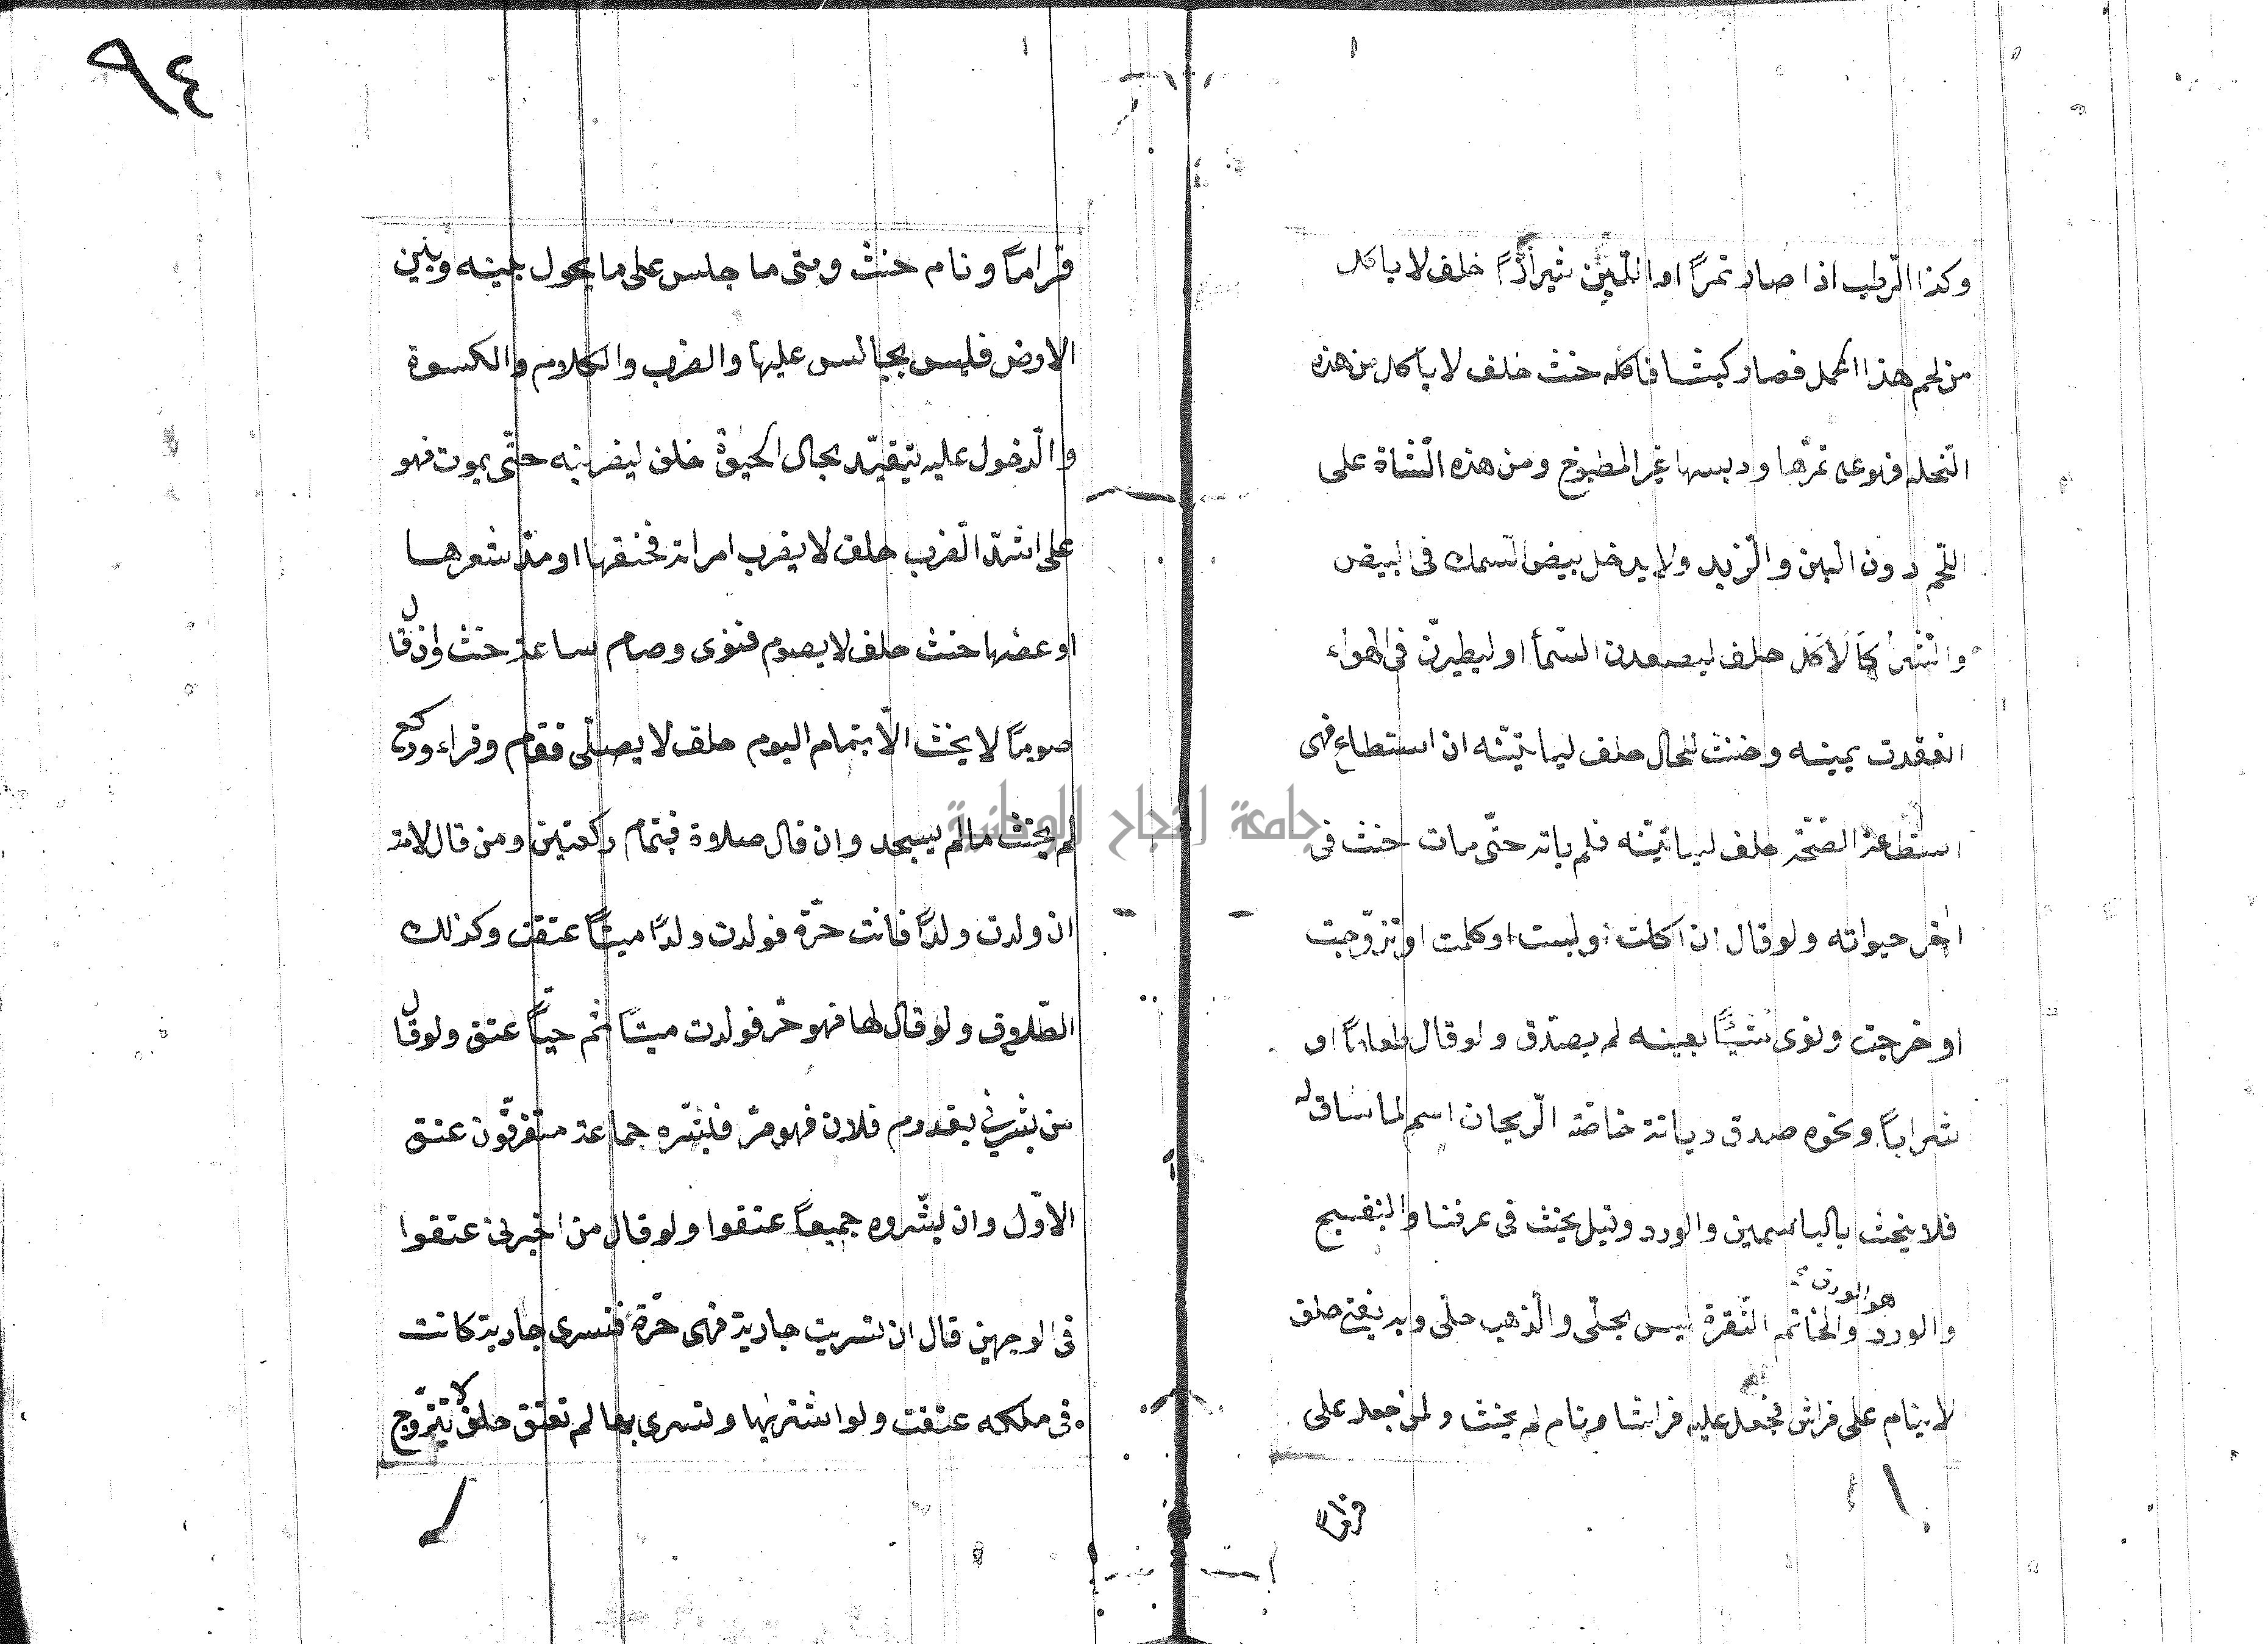 ٩٤
وكذا الرّطب اذا صار تمرًا او اللّبن شيرازًا حلف لا ياكل
من لحم هذا الحمل فصار كبشا فاكله حنث حلف لا ياكل من هذه
النّخله فهو على تمرّها ودبسها غير المطبوخ ومن هذه الشّاة على
اللّحم دون اللبن والزّبد ولا يدخل بيض السّمك فى البيض
والشّرى كالاكل حلف ليصعدن السّمأ او ليطيرنّ فى الهواء
انعقدت يمينه وحنث للحال حلف لياتيّنه ان استطاع فهى
استطاعة الصّحّة حلف لياتيّنه فلم ياته حتّى مات حنث فى
اخر حيواته ولو قال ان اكلت او لبست او كلمت او تزوّجت
او خرجت ونوى شيئًا بعينه لم يصدّق ولو قال طعامًا او
شرابًا ونحوه صدق ديانة خاصّة الرّيحان اسم لما ساق له
فلا يحنث بالياسمين والورد وقيل يحنث فى عرفنا والبنفسج
هو الورق
والورد والخاتم النّقرة ليس بحلّى والذّهب حلّى وبه يفتى حلف
لا ينام على فراش فجعل عليه فراشا ونام لم يحنث ولمن جعل على
قراما
قرامًا ونام حنث ومتى ما جلس على ما يحول بينه وبين
الارض فليس بجالس عليها والضرب والكلام والكسوة
والدّخول عليه يتقيّد بحال الحيوة حلف ليضربنه حتّى يموت فهو
على اشدّ الضرب حلف لا يضرب امراته فخنقها او مدّ شعرها
او عضها حنث حلف لا يصوم فنوى وصام ساعة حنث وان قال
صومًا لا يحنث الّا بتمام اليوم حلف لا يصلّى فقام وقراء وركع
لم يحنث مالم يسجد وان قال صلاوة فبتمام ركعتين ومن قال لامته
ان ولدت ولدًا فانت حرّة فولدت ولدًا ميتًا عتقت وكذلك
الطّلاق ولو قال لها فهو حّر فولدت ميتًا ثم حيًّا عتق ولو قال
من بشرنى بقدوم فلان فهو حرّ فبشّره جماعة متفرّقون عتق
الاوّل وان بشّروه جميعًا عتقوا ولو قال من اخبرنى عتقوا
فى الوجهين قال ان تسريت جارية فهى حرّة فتسرى جارية كانت
فى ملكه عتقت ولو اشتريها وتسرى بها لم تعتق حلف لا يتزوّج
جامعة النجاح الوطنية